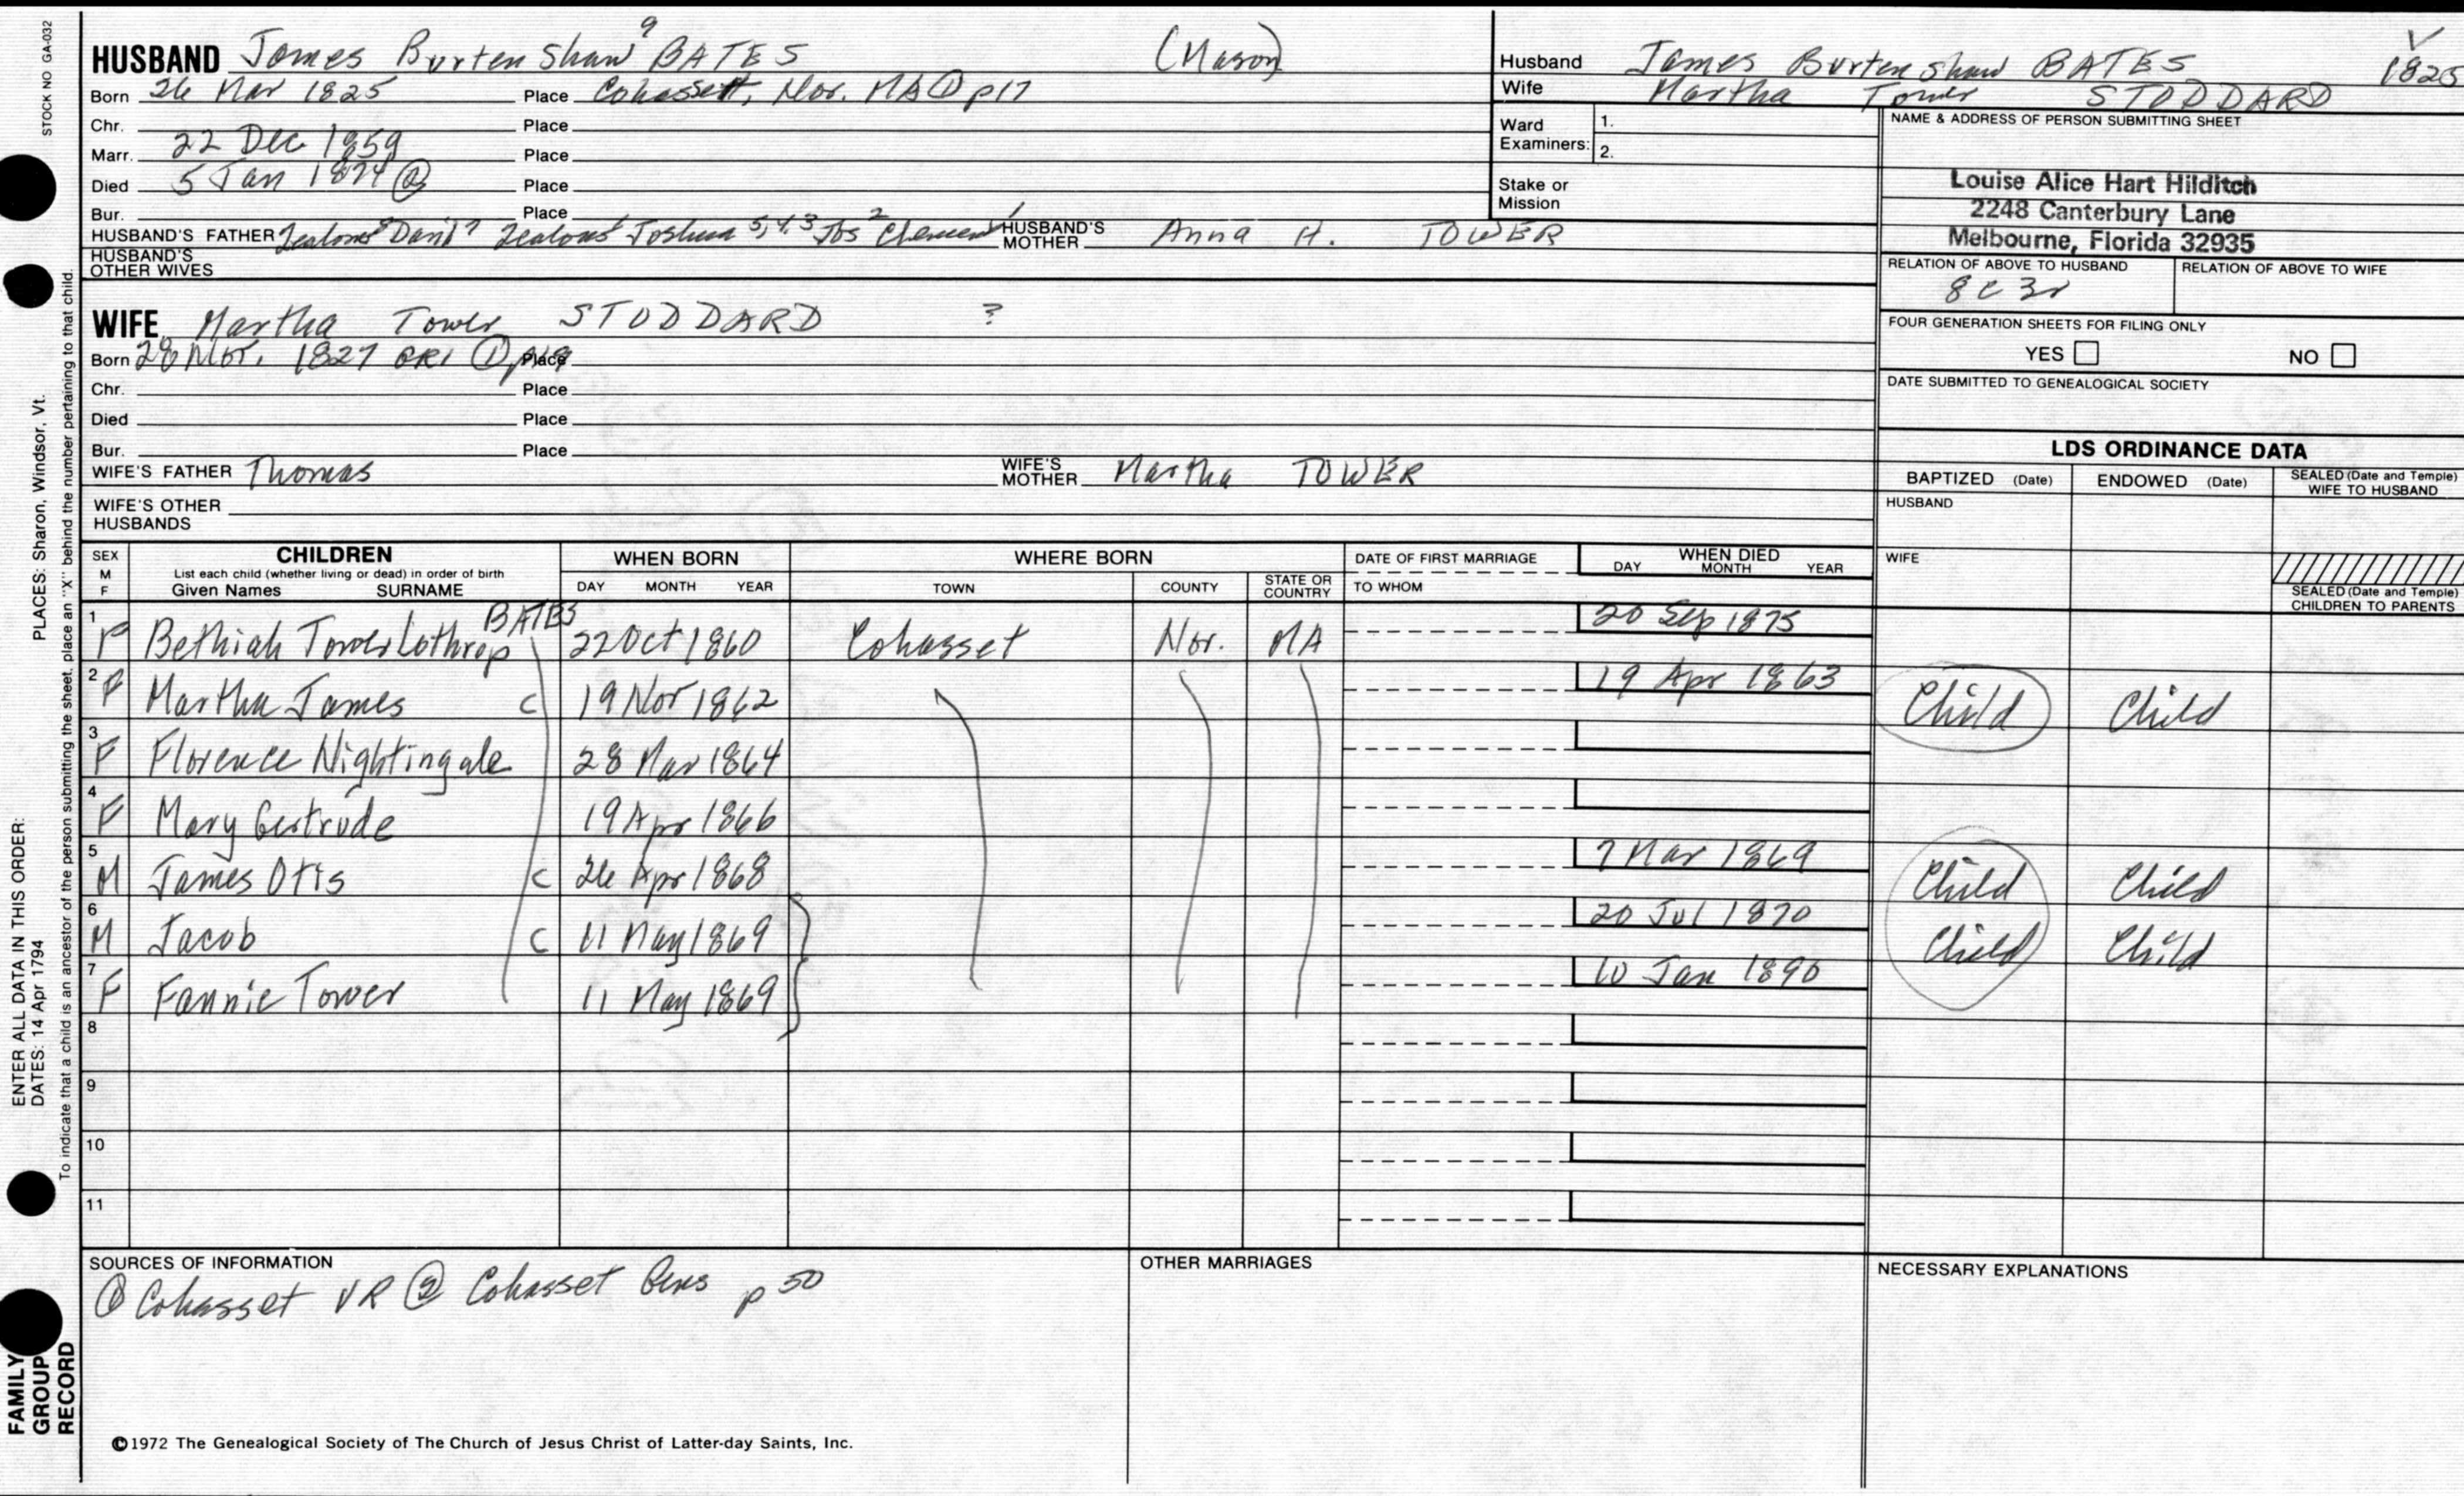 STOCK NO GA-032
HUSBAND James Burtenshaw⁹ BATES (Mason)
Born 26 Mar 1825 Place Cohassett, Nor. MA ① p17
Chr. Place
Marr. 22 Dec 1859 Place
Died 5 Jan 1874 ② Place
Bur. Place
HUSBAND'S FATHER Zealous⁸ David⁷ Zealous⁶ Joshua 5,4,3 Jos² Clement¹ HUSBAND'S MOTHER Anna H. TOWER
HUSBAND'S OTHER WIVES
WIFE Martha Tower STODDARD ?
Born 28 Nov. 1827 ① Place
Chr. Place
Died Place
Bur. Place
WIFE'S FATHER Thomas WIFE'S MOTHER Martha TOWER
WIFE'S OTHER HUSBANDS
Husband James Burtenshaw BATES 1825
Wife Martha Tower STODDARD
Ward Examiners: 1.
2.
Stake or Mission
NAME & ADDRESS OF PERSON SUBMITTING SHEET
Louise Alice Hart Hilditch
2248 Canterbury Lane
Melbourne, Florida 32935
RELATION OF ABOVE TO HUSBAND RELATION OF ABOVE TO WIFE
8c3r
FOUR GENERATION SHEETS FOR FILING ONLY
YES NO
DATE SUBMITTED TO GENEALOGICAL SOCIETY
LDS ORDINANCE DATA
BAPTIZED (Date) ENDOWED (Date) SEALED (Date and Temple) WIFE TO HUSBAND
HUSBAND
WIFE
SEALED (Date and Temple) CHILDREN TO PARENTS
SEX M F CHILDREN WHEN BORN WHERE BORN DATE OF FIRST MARRIAGE WHEN DIED
List each child (whether living or dead) in order of birth
Given Names SURNAME DAY MONTH YEAR TOWN COUNTY STATE OR COUNTRY TO WHOM DAY MONTH YEAR
1 F Bethiah Tower Lothrop BATES 22 Oct 1860 Cohasset Nor. MA 20 Sep 1875
2 F Martha James C 19 Nov 1862 19 Apr 1863 Child Child
3 F Florence Nightingale 28 Mar 1864
4 F Mary Gertrude 19 Apr 1866
5 M James Otis C 26 Apr 1868 7 Mar 1869 Child Child
6 M Jacob C 11 May 1869 20 Jul 1870 Child Child
7 F Fannie Tower 11 May 1869 10 Jan 1890
8
9
10
11
SOURCES OF INFORMATION OTHER MARRIAGES NECESSARY EXPLANATIONS
① Cohasset VR ② Cohasset Gens p 50
©1972 The Genealogical Society of The Church of Jesus Christ of Latter-day Saints, Inc.
FAMILY GROUP RECORD
ENTER ALL DATA IN THIS ORDER:
DATES: 14 Apr 1794
PLACES: Sharon, Windsor, Vt.
To indicate that a child is an ancestor of the person submitting the sheet, place an "X" behind the number pertaining to that child.